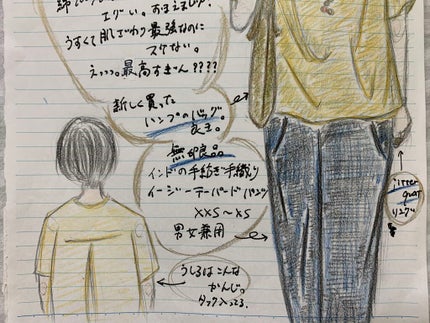 エグい。おまえまじか。
うすくて肌ざわり最強なのに
スケない。
えっっ。最高すぎん????
新しく買った
ヘンプのバッグ。
良き。
無印良品
インドの手紡ぎ手織り
イージーテーパードパンツ
XXS〜XS
男女兼用
うしろはこんな
かんじ。
タック入ってる。
リング